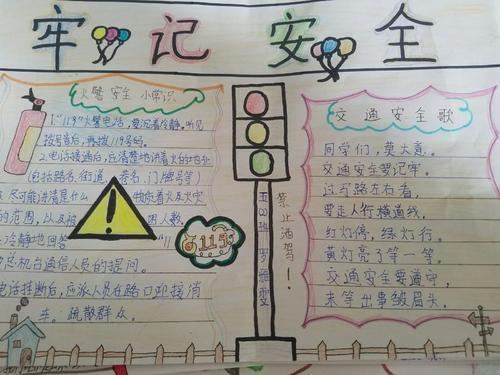 牢记安全
火警安全 小常识
1."119"火警电话,要沉着冷静。听见
拨号音后,再拨119号码。
2.电话接通后,应清楚地讲着火的地址
(包括路名、街道、巷名、门牌号等)
尽可能讲清是什么 物质着火及火灾
的范围,以及被 困人数。
冷静地回答 "11
9总机台通信人员的提问。
电话挂断后,应派人员在路口迎接消
车。疏散群众。
119
禁止酒驾!
交通安全歌
同学们,莫大意。
交通安全要记牢。
过马路左右看,
要走人行横道线。
红灯停,绿灯行。
黄灯亮了等一等。
交通安全要遵守,
未等出事皱眉头。